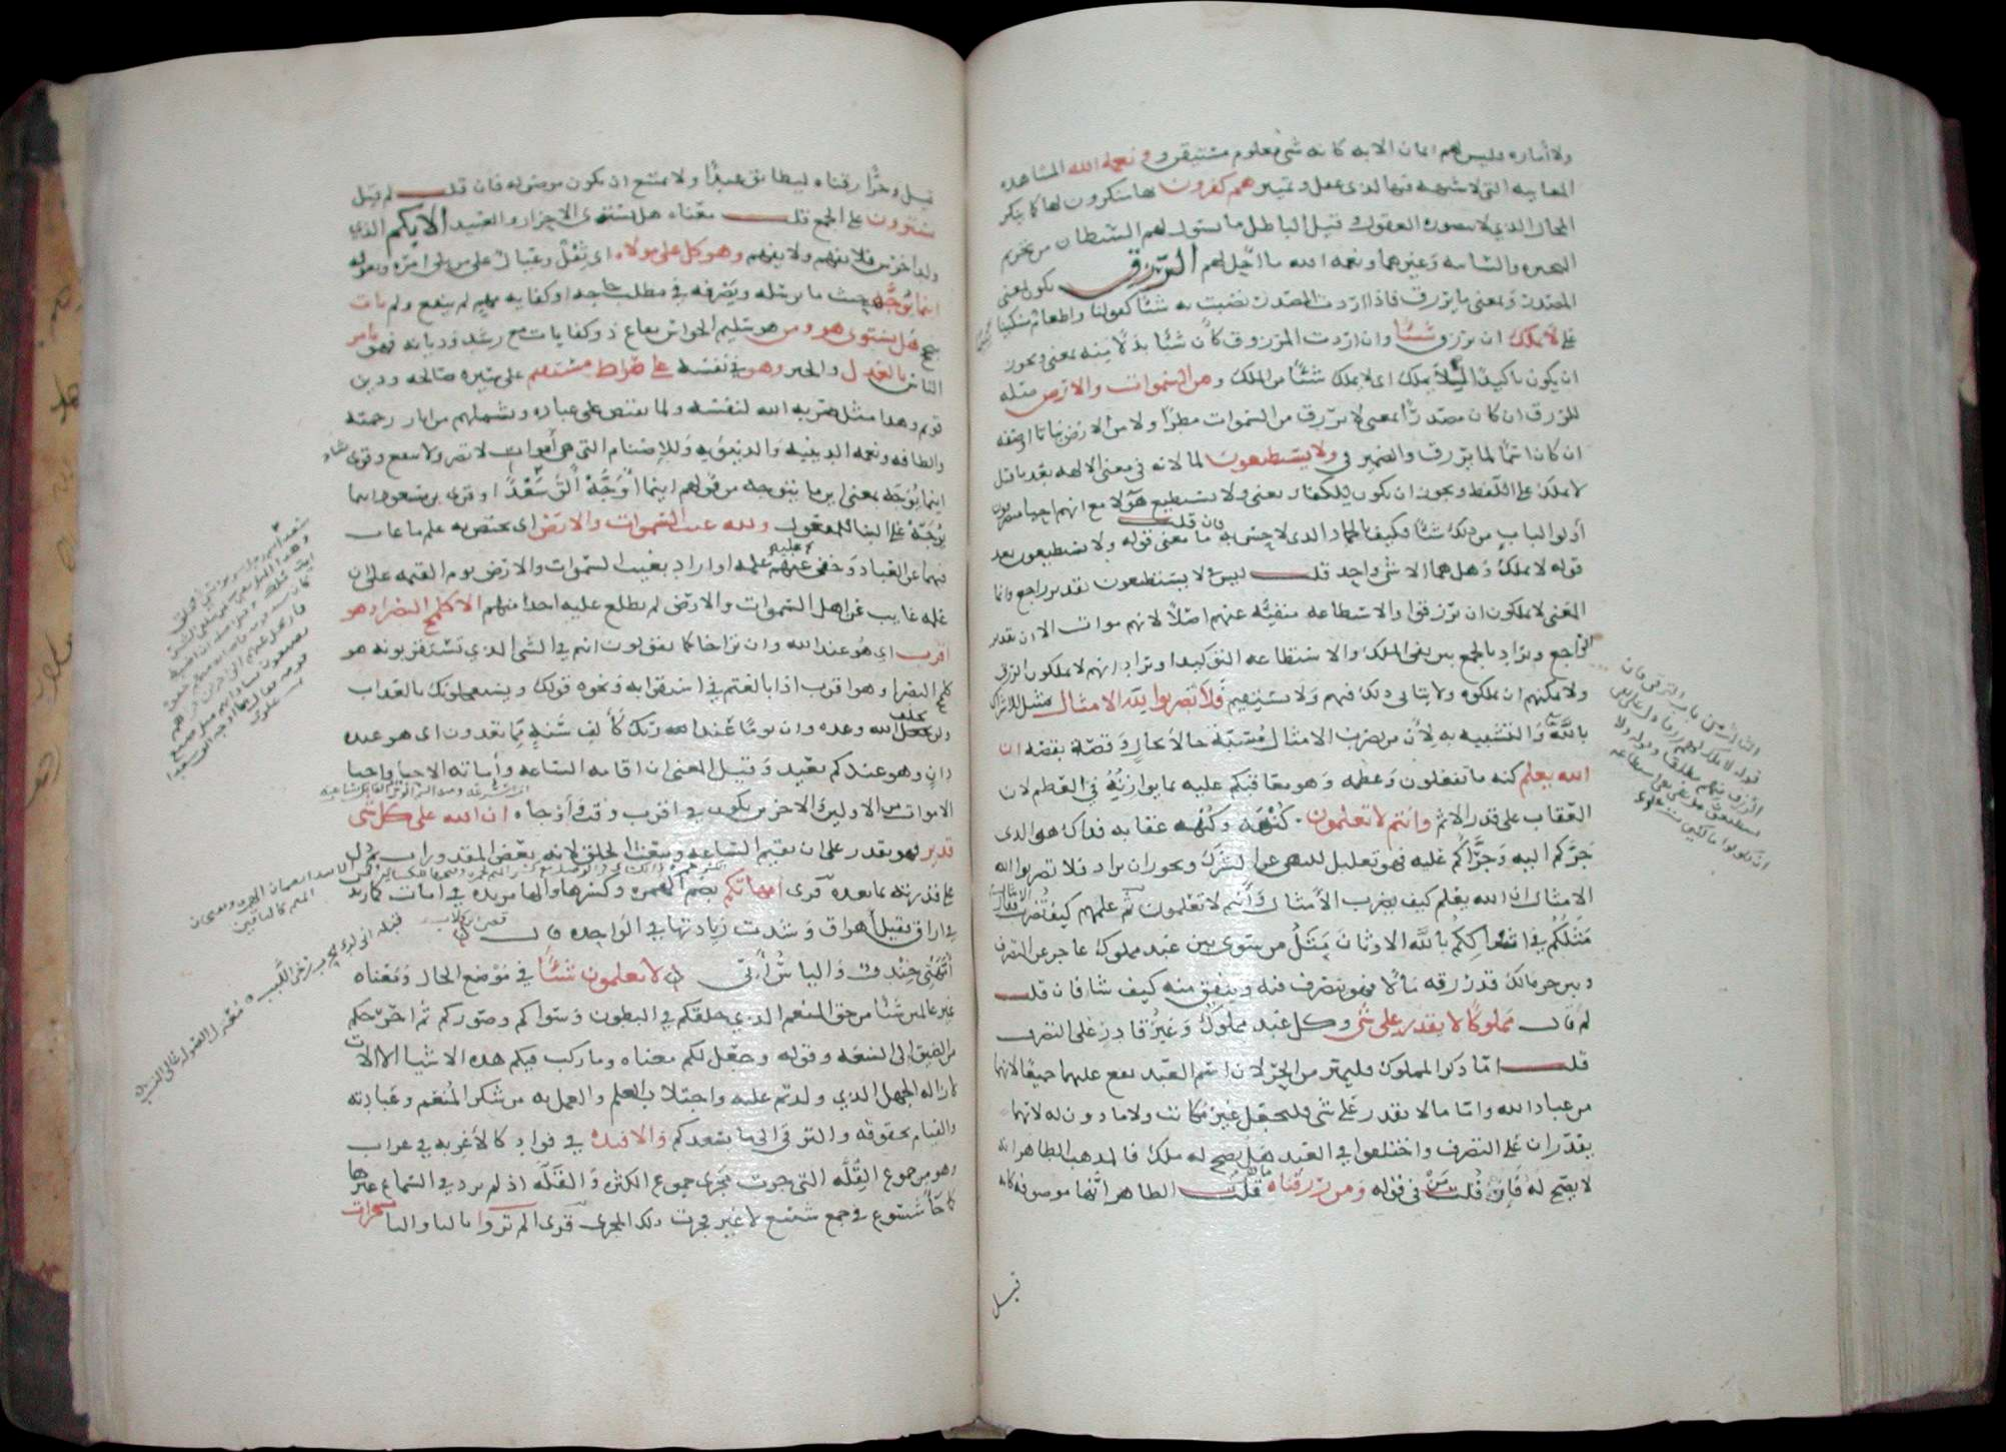 ولا أماره فليس لهم ايمان الا به كانه شى معلوم مستيقن وبنعمه الله المشاهده
المعاينه التى لا شبهه فيها لذى عقل وتمييز هم كفرون بها منكرون لها كما ينكر
المحال الذى لا يتصوره العقول وقيل الباطل ما يسول لهم الشيطان من تحريم
البحيره والسائبه وغيرهما ونعمه الله ما احل لهم الرزق يكون بمعنى
المصدر وبمعنى ما يرزق فاذا اردت المصدر نصبت به شئا كقوله او اطعام مسكينا
على لا يملك ان يرزق شئا وان اردت المرزوق كان شئا بدلا منه بمعنى ويجوز
ان يكون تاكيدا للا يملك اى لا يملك شئا من الملك ومن السموات والارض صله
للرزق ان كان مصدرا بمعنى لا يرزق من السموات مطرا ولا من الارض نباتا او صفه
ان كان اسما لما يرزق والضمير فى ولا يستطيعون لما لانه فى معنى الالهه بعد ما قيل
لا يملك على اللفظ ويجوز ان يكون للكفار يعنى ولا يستطيع هولا مع انهم احيا متصرفون
أولوا الباب من ذلك شئا فكيف بالجماد الذى لا حس به فان قلت ما معنى قوله ولا يستطيعون بعد
قوله لا يملك وهل هما الا شى واحد قلت ليس فى لا يستطيعون تقدير راجع وانما
المعنى لا يملكون ان يرزقوا والاستطاعه منفيه عنهم اصلا لانهم موات الا ان تقدر
الراجع وتراد بالجمع بين نفى الملك والاستطاعه التوكيد او تراد انهم لا يملكون الرزق
ولا يمكنهم ان يملكوه ولا يتاتى ذلك فيهم ولا يستقيم فلا تضربوا لله الامثال تمثيل للاشراك
بالله والتشبيه به لأن من يضرب الامثال مشبه حالا بحال وقصة بقصه ان
الله يعلم كنه ما تفعلون وعظمه وهو معاقبكم عليه بما يوازنه فى العظم لان
العقاب على قدر الاثم وانتم لا تعلمون كنهه وكنه عقابه فذاك هو الذى
جركم اليه وجرأكم عليه فهو تعليل للنهى عن الشرك ويجوز ان يراد فلا تضربوا لله
الامثال ان الله يعلم كيف يضرب الأمثال وأنتم لا تعلمون ثم علمهم كيف تضرب فقال
مثلكم فى اشراككم بالله الاوثان مثل من سوى بين عبد مملوك عاجز عن التصرف
وبين حر مالك قد رزقه مالا فهو يتصرف فيه وينفق منه كيف شا فان قلت
لم قال مملوكا لا يقدر على شى وكل عبد مملوك وغير قادر على التصرف
قلت اما ذكر المملوك فليميز من الحر لان اسم العبد يقع عليهما جميعا لانهما
من عباد الله واما لا يقدر على شى فليجعل غير مكاتب ولا ماذون له لانهما
يقدران على التصرف واختلفوا فى العبد هل يصح له ملك فالمذهب الظاهر انه
لا يصح له فان قلت من فى قوله ومن رزقناه ما هى قلت الظاهر انها موصوفه كانه
قيل
قيل وحرا رزقناه ليطابق عبدا ولا يمتنع ان يكون موصوله فان قلت لم قيل
يستوون على الجمع قلت معناه هل يستوى الاحرار والعبيد الأبكم الذى
ولد اخرس فلا يفهم ولا يفهم وهو كل على مولاه اى ثقل وعيال على من يلى امره ويعوله
اينما يوجهه حيث ما يرسله ويصرفه فى مطلب حاجه او كفايه مهم لم ينفع ولم يات
بنجح هل يستوى هو ومن هو سليم الحواس نفاع ذو كفايات مع رشد وديانه فهو يامر
الناس بالعدل والخير وهو فى نفسه على صراط مستقيم على سيره صالحه ودين
قويم وهذا مثل ضربه الله لنفسه ولما يفيض على عباده ويشملهم من اثار رحمته
والطافه ونعمه الدينيه والدنيويه وللاصنام التى هى أموات لا تضر ولا تنفع وقرى
اينما يوجه بمعنى اين ما يتوجه من قولهم اينما أوجه ألق سعدا وقرى بن مسعود اينما
يوجه على البنا للمفعول ولله غيب السموات والارض اى يختص به علم ما غاب
فيهما عن العباد وخفى عليهم علمه او اراد بغيب السموات والارض يوم القيمه على ان
علمه غايب عن اهل السموات والارض لم يطلع عليه احدا منهم الا كلمح البصر او هو
اقرب اى هو عند الله وان تراخى كما يقولون انتم فى الشى الذى تستقربونه هو
كلمح البصر او هو اقرب اذا بالغتم فى استقرابه ونحوه قوله ويستعجلونك بالعذاب
ولن يخلف الله وعده وان يوما عند ربك كألف سنة مما تعدون اى هو عنده
دان وهو عندكم بعيد وقيل المعنى ان اقامه الساعه وأماته الاحيا واحيا
الاموات من الاولين والاخرين يكون فى اقرب وقت وأوجاه ان الله على كل شى
قدير فهو يقدر على ان يقيم الساعه ويبعث الخلق لانه بعض المقدورات ثم دل
على قدرته بما بعده قرى امهاتكم بضم الهمزه وكسرها والها مزيده فى امات كما زيدت
فى اراق فقيل أهراق وشذت زيادتها فى الواحده قال
أمهتى خندف والياس أبى لا تعلمون شئا فى موضع الحال ومعناه
غير عالمين شئا من حق المنعم الذى خلقكم فى البطون وسواكم وصوركم ثم اخرجكم
من الضيق الى السعه وقوله وجعل لكم معناه وما ركب فيكم هذه الاشيا الا الات
لازاله الجهل الذى ولدتم عليه واجتلاب العلم والعمل به من شكر المنعم وعبادته
والقيام بحقوقه والترقى الى ما يسعدكم والافئده فى فواد كالأغربه فى غراب
وهو من جموع القلة التى جرت مجرى جموع الكثره والقلة اذ لم يرد فى السماع غيرها
كما جأ شسوع فى جمع شسع لا غير فجرت ذلك المجرى قرى الم تروا بالتا واليا مسخرات